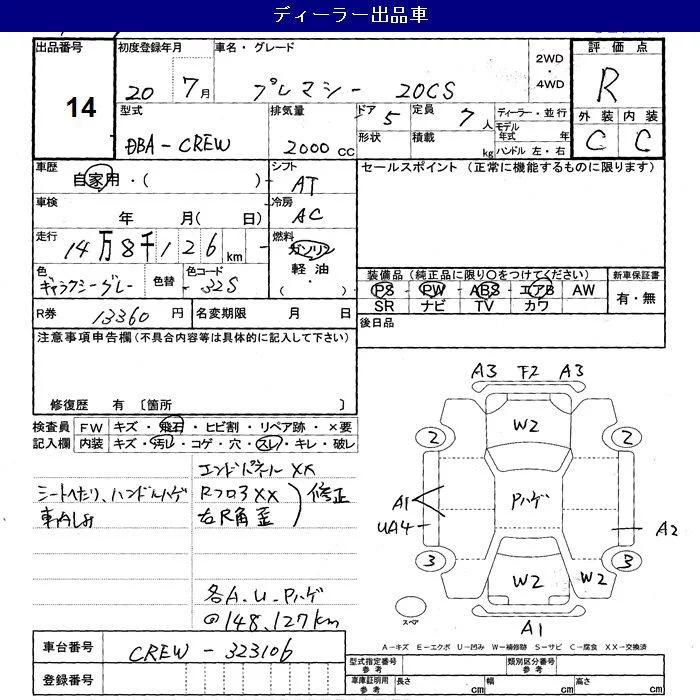 ディーラー出品車
出品番号 初度登録年月 車名・グレード 2WD ・ 4WD 評価点
14 20 7月 プレマシー 20CS R
型式 排気量 ドア 5 定員 7人 ディーラー・並行 外装 内装
DBA-CREW 2000cc 形状 積載 kg モデル年式 年 ハンドル 左・右 C C
車歴 自家用・( ) シフト AT セールスポイント (正常に機能するものに限ります)
車検 年 月( 日) 冷房 AC
走行 14万8千126km 燃料 ガソリン 軽油 ( )
色 ギャラクシーグレー 色替 色コード 32S
装備品(純正品に限り〇をつけてください) 新車保証書
PS PW ABS エアB AW 有・無
SR ナビ TV カワ
R券 13360円 名変期限 月 日 後日品
注意事項申告欄(不具合内容等は具体的に記入して下さい)
修復歴 有 〔箇所 〕
検査員 FW キズ・飛石・ヒビ割・リペア跡・×要
記入欄 内装 キズ・汚レ・コゲ・穴・スレ・キレ・破レ
シートヘタリ、ハンドルハゲ
エンドパネルXX
RフロアXX
右R角歪
修正
各A.U.Pハゲ
@148,127km
A3 F2 A3
W2
2 2
A1 Pハゲ
UA4 A2
3 3
W2 W2
スペア A1
A-キズ E-エクボ U-凹み W-補修跡 S-サビ C-腐食 XX-交換済
車台番号 CREW-323106
登録番号
型式指定番号 参考 類別区分番号 参考
車庫証明用 参考 長さ cm 幅 cm 高さ cm